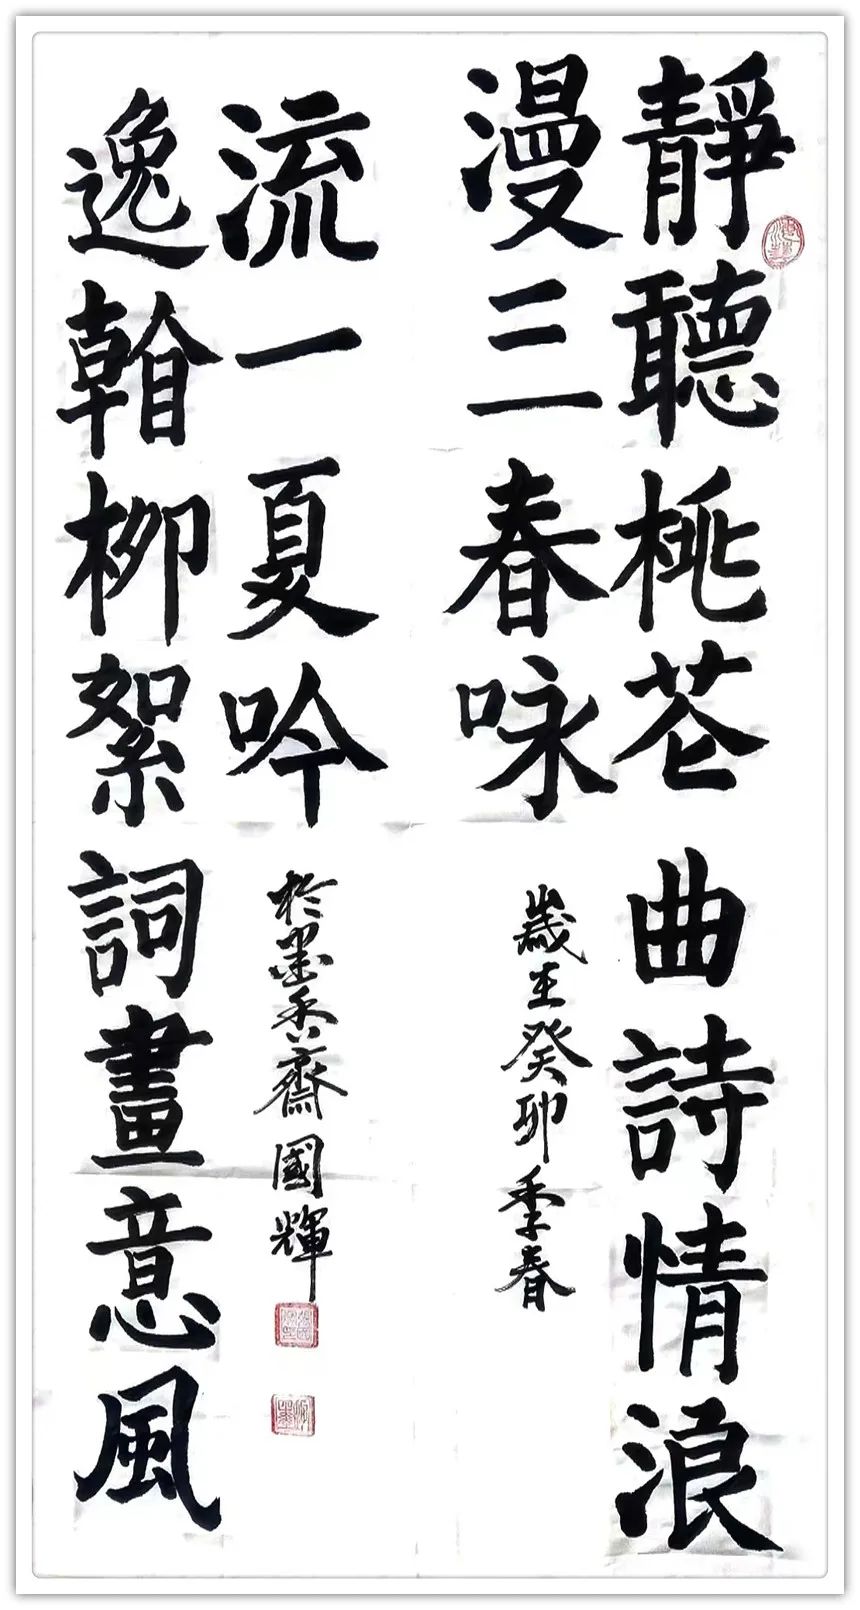 靜聽桃花曲詩情浪
漫三春咏
歲在癸卯季春
逸翰柳絮詞畫意風
流一夏吟
於墨香齋國輝